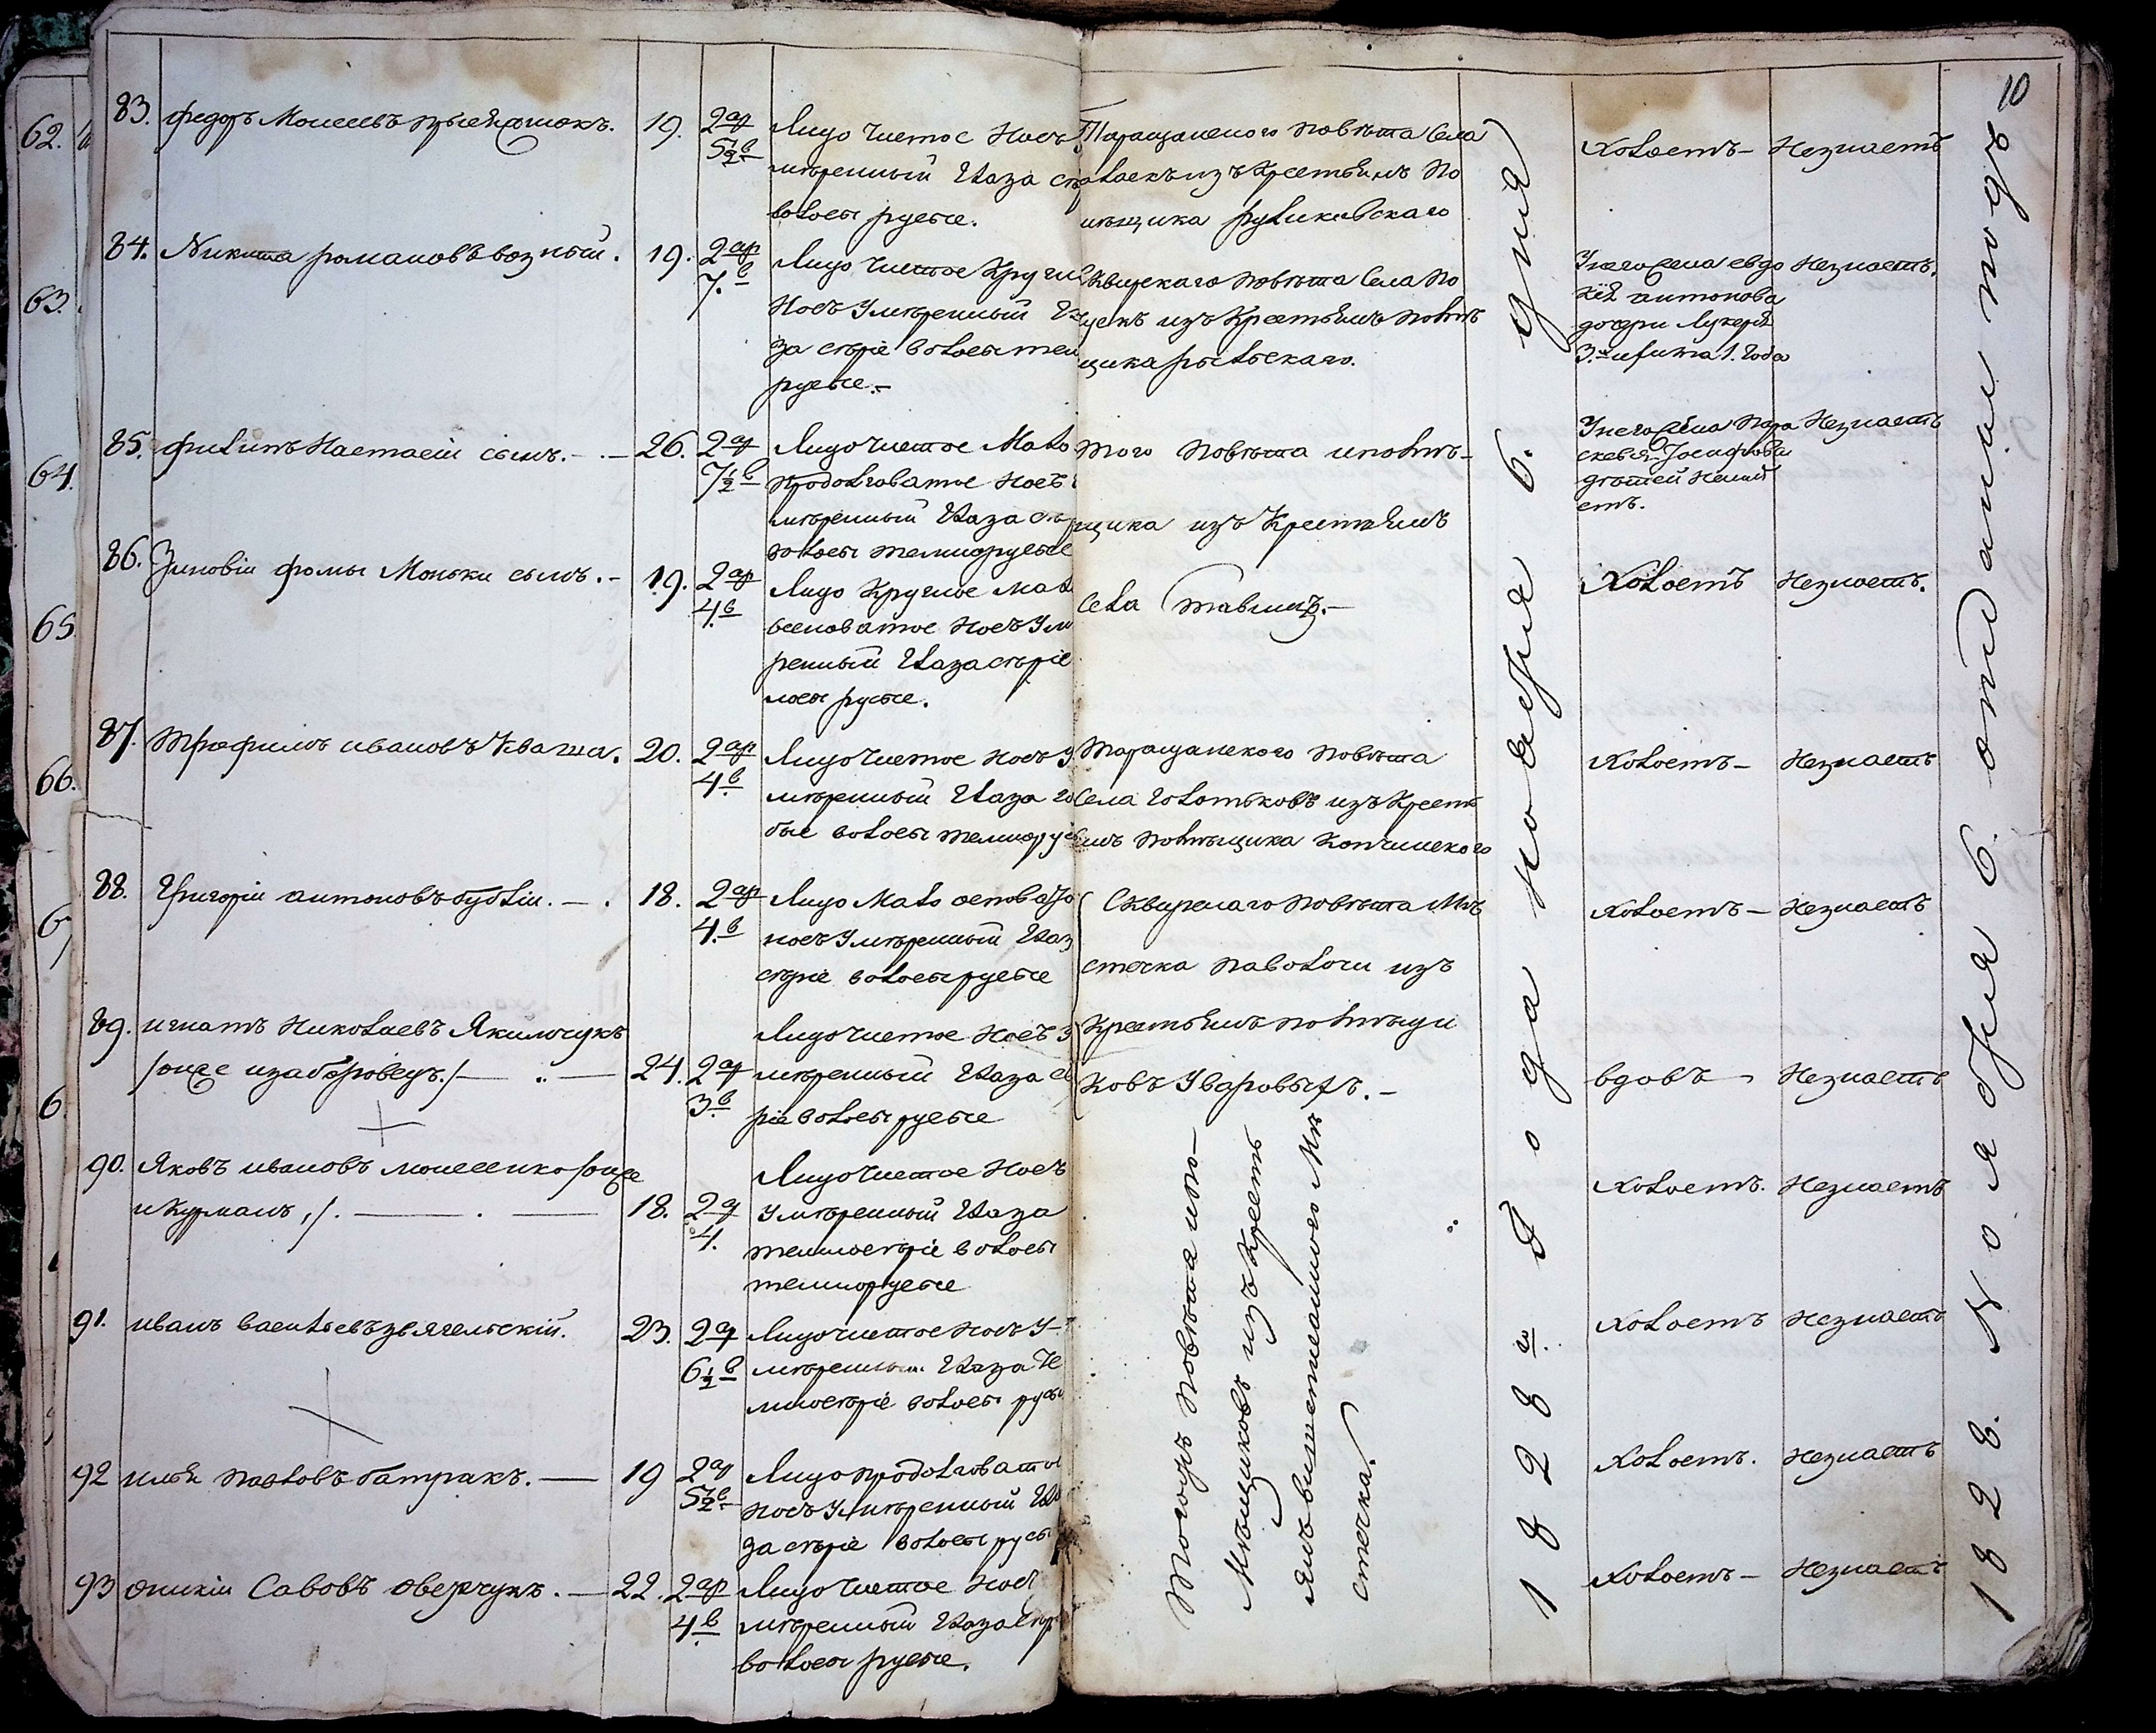 10
62.
63.
64.
65
66.
83. федоръ Моисеевъ
19. 2 ар 5½ в
Лицо чистое Носъ
мѣренный Глаза
волосы русые.
Таращанского повѣта Села
изъ Крестьянъ По
мѣщика Руликовскаго
Холостъ – Незнаетъ
84. Никита романовъ возный.
19. 2 ар 7. в
Лицо чистое Кругло
Носъ Умѣренный Гла
за сѣріе волосы тем
русые. –
Сквирскаго повѣта Села По
изъ Крестьянъ помѣ
щика рыльскаго.
Унего жена евдо
кія антонова
дочери Лукерія
Незнаетъ.
85. филипъ Настасіи сынъ. –
26. 2 ар 7½ в
Лицо чистое Мало
продолговатое Носъ
мѣренный Глаза сѣр
волосы темнорусые
того повѣта и помѣ–
щика изъ Крестьянъ
Унего жена Пара
скевія Іосифова
дѣтей неимѣ
етъ.
Незнаетъ
86. Зиновіи фомы Моньки сынъ. –
19. 2 ар 4. в
Лицо Круглое мало
весноватое Носъ Умѣ
ренный Глаза сѣріе
лосы русые.
Села
Холостъ Незнаетъ.
87. Трофимъ ивановъ Кваша.
20. 2 ар 4. в
Лицо чистое Носъ У
мѣренный Глаза голу
бые волосы темнорус
Таращанского повѣта
Села изъ Кресть
янъ помѣщика
Холостъ – Незнаетъ
88. Григоріи антоновъ бублій. –
18. 2 ар 4. в
Лицо Мало осповато
носъ Умѣренный Глаз
сѣріе волосы русые
Сквирскаго повѣта Мѣ
стечка Паволочи изъ
Крестьянъ помѣщи
ковъ Уваровыхъ. –
Холостъ – Незнаетъ
89. игнатъ Николаевъ Якимчукъ
/онже изаборовецъ./ –
24. 2 ар 3. в
Лицо чистое Носъ У
мѣренный Глаза сѣ
ріе волосы русые
вдовъ – Незнаетъ
90. Яковъ ивановъ моисеенко /онже
и Курманъ,/. –
18. 2 ар 4.
Лицо чистое Носъ
Умѣренный Глаза
темносѣріе волосы
темнорусые
Холостъ. Незнаетъ
91. иванъ васильевъ звягельскій.
23. 2 ар 6½ в
Лицо чистое Носъ У
мѣренный Глаза те
мносѣріе волосы русы
Холостъ Незнаетъ
92 илья павловъ батракъ. –
19 2 ар 5½ в
Лицо продолговатое
носъ Умѣренный Гла
за сѣріе волосы русы
Холостъ. Незнаетъ
93 оникіи Савовъ оверчукъ. –
22. 2 ар 4. в
Лицо чистое Носъ
мѣренный Глаза Сѣр
волосы русые.
Холостъ – Незнаетъ
Тогожъ повѣта и по–
мѣщиковъ изъ Кресть
янъ вишеписанного Мѣ
стечка.
1828го года ноября 6. дня
1828. Ноября 6. отдани тогдъ